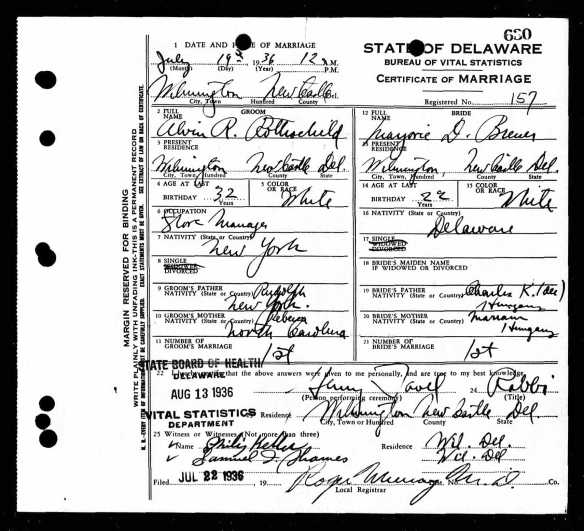 680
1 DATE AND PLACE OF MARRIAGE
July 19th 1936 12 A.M.
(Month) (Day) (Year) P.M.
STATE OF DELAWARE
BUREAU OF VITAL STATISTICS
CERTIFICATE OF MARRIAGE
Wilmington New Castle Del.
City, Town Hundred County
Registered No. 157
2 FULL NAME GROOM
Alvin R. Rothschild
3 PRESENT RESIDENCE
Wilmington New Castle Del.
City, Town/Hundred County State
4 AGE AT LAST BIRTHDAY 32 Years
5 COLOR OR RACE White
6 OCCUPATION
Store Manager
7 NATIVITY (State or Country)
New York
8 SINGLE
WIDOWED
DIVORCED
9 GROOM'S FATHER Rudolph
NATIVITY (State or Country) New York.
10 GROOM'S MOTHER Rebecca
NATIVITY (State or Country) North Carolina
11 NUMBER OF GROOM'S MARRIAGE 1st
12 FULL NAME BRIDE
Marjorie D. Brewer
13 PRESENT RESIDENCE
Wilmington, New Castle Del.
City, Town/Hundred County State
14 AGE AT LAST BIRTHDAY 22 Years
15 COLOR OR RACE White
16 NATIVITY (State or Country)
Delaware
17 SINGLE
WIDOWED
DIVORCED
18 BRIDE'S MAIDEN NAME
IF WIDOWED OR DIVORCED
BRIDE'S FATHER Charles K.
NATIVITY (State or Country) Hungary
20 BRIDE'S MOTHER Mariam
NATIVITY (State or Country) Hungary
21 NUMBER OF BRIDE'S MARRIAGE 1st
STATE BOARD OF HEALTH
DELAWARE
AUG 13 1936
VITAL STATISTICS
DEPARTMENT
22 I hereby certify that the above answers were given to me personally, and are true to my best knowledge.
Henry 24 Rabbi
(Person performing ceremony) (Title)
Residence Wilmington New Castle Del
City, Town or Hundred County State
25 Witness or Witnesses (Not more than three)
Name Philip Residence Wil. Del.
Samuel Wil. Del.
Filed JUL 22 1936, 19 Roger Murray M.D. No. Co.
Local Registrar
MARGIN RESERVED FOR BINDING
WRITE PLAINLY WITH UNFADING INK-THIS IS A PERMANENT RECORD